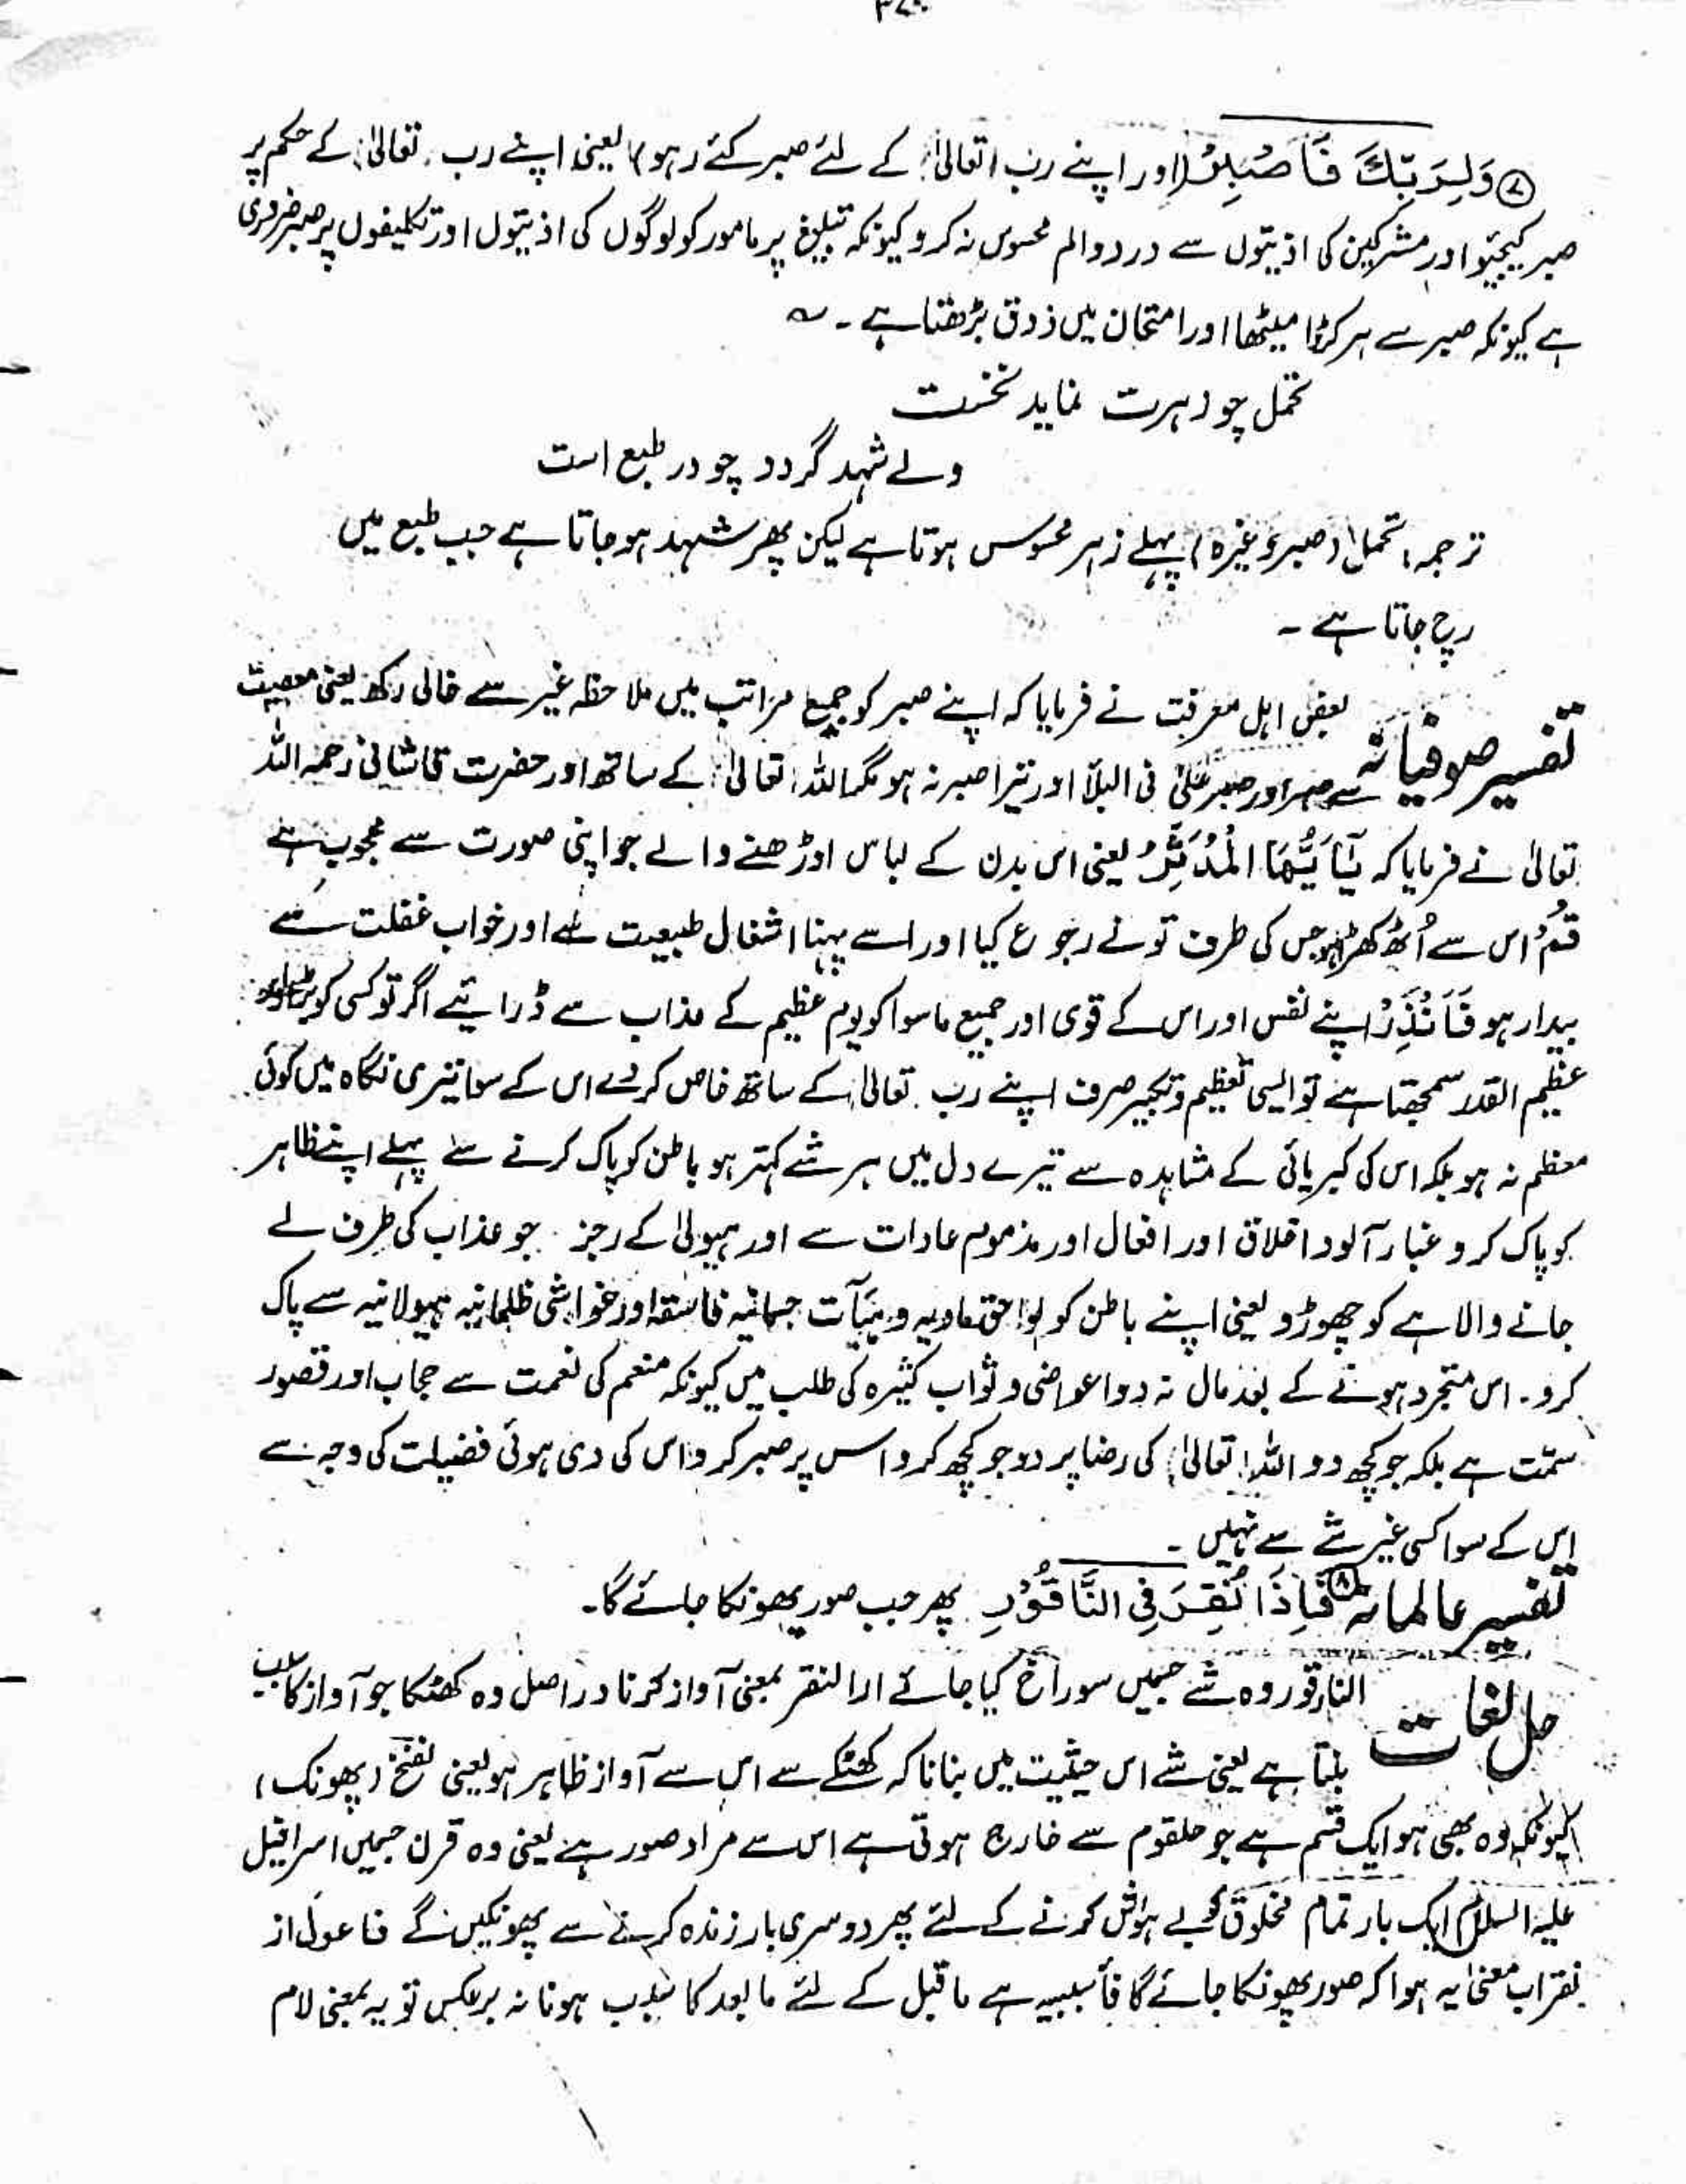 ۷ وَلِرَبِّكَ فَاصْبِرْ (اور اپنے رب (تعالیٰ) کے لئے صبر کئے رہو) یعنی اپنے رب (تعالیٰ) کے حکم پر
صبر کیجئیو اور مشرکین کی اذیتوں سے درد و الم محسوس نہ کرو کیونکہ تبلیغ پر مامور کو لوگوں کی اذیتوں اور تکلیفوں پر صبر ضروری
ہے کیونکہ صبر سے ہر کڑوا میٹھا اور امتحان میں ذوق بڑھتا ہے ۔ ؎
تحمل چو زہرت نماید نخست
ولے شہد گردد چو در طبع است
ترجمہ: تحمل (صبر وغیرہ) پہلے زہر محسوس ہوتا ہے لیکن پھر شہد ہو جاتا ہے جب طبع میں
رچ جاتا ہے ۔
تفسیر صوفیانہ بعض اہل معرفت نے فرمایا کہ اپنے صبر کو جمیع مراتب میں ملاحظہ غیر سے خالی رکھ یعنی معصیت
سے صبر اور صبر علیٰ فی البلآ اور تیرا صبر نہ ہو مگر اللہ (تعالیٰ) کے ساتھ اور حضرت قاشانی رحمہ اللہ
تعالیٰ نے فرمایا کہ یٰٓاَیُّهَا الْمُدَّثِّرُ یعنی اس بدن کے لباس اوڑھنے والے جو اپنی صورت سے محجوب ہے
قُمْ اس سے اُٹھ کھڑا ہو جس کی طرف تو نے رجوع کیا اور اسے پہنا اشغال طبیعت سے اور خواب غفلت سے
بیدار ہو فَاَنْذِرْ اپنے نفس اور اس کے قوی اور جمیع ماسوا کو یوم عظیم کے عذاب سے ڈرائیے اگر تو کسی کو بڑا اور
عظیم القدر سمجھتا ہے تو ایسی تعظیم و تکبیر صرف اپنے رب تعالیٰ کے ساتھ خاص کر دے اس کے سوا تیری نگاہ میں کوئی
معظم نہ ہو بلکہ اس کی کبریائی کے مشاہدہ سے تیرے دل میں ہر شے کمتر ہو باطن کو پاک کرنے سے پہلے اپنے ظاہر
کو پاک کرو غبار آلود اخلاق اور افعال اور مذموم عادات سے اور ہیولیٰ کے رجز جو عذاب کی طرف لے
جانے والا ہے کو چھوڑو یعنی اپنے باطن کو لواحق مادیہ و ہیَآت جسمانیہ فاسقہ اور غواشی ظلمانیہ ہیولانیہ سے پاک
کرو۔ اس متجرد ہونے کے بعد مال نہ دو اعواضی و ثواب کثیرہ کی طلب میں کیونکہ منعم کی نعمت سے حجاب اور قصور
ہمّت ہے بلکہ جو کچھ دو اللہ (تعالیٰ) کی رضا پر دو جو کچھ کرو اس پر صبر کرو اس کی دی ہوئی فضیلت کی وجہ سے
اس کے سوا کسی غیر شے سے نہیں ۔
تفسیر عالمانہ ۸ فَاِذَا نُقِرَ فِی النَّاقُوْرِ پھر جب صور پھونکا جائے گا۔
حل لغات الناقور وہ شے جسمیں سوراخ کیا جائے النقر بمعنی آواز کرنا دراصل وہ کھٹکا جو آواز کا سبب
بنتا ہے یعنی شے اس حیثیت میں بنانا کہ کھٹکے سے اس سے آواز ظاہر ہو یعنی نفخ (پھونک)
کیونکہ وہ بھی ہوا ایک قسم ہے جو حلقوم سے خارج ہوتی ہے اس سے مراد صور ہے یعنی وہ قرن جسمیں اسرافیل
علیہ السلام ایک بار تمام مخلوق کو بے ہوش کرنے کے لئے پھر دوسری بار زندہ کرنے سے پھونکیں گے فاعول از
نقر اب معنیٰ یہ ہوا کہ صور پھونکا جائے گا فأ سببیہ ہے ماقبل کے لئے مابعد کا سبب ہونا نہ برعکس تو یہ بمعنی لام